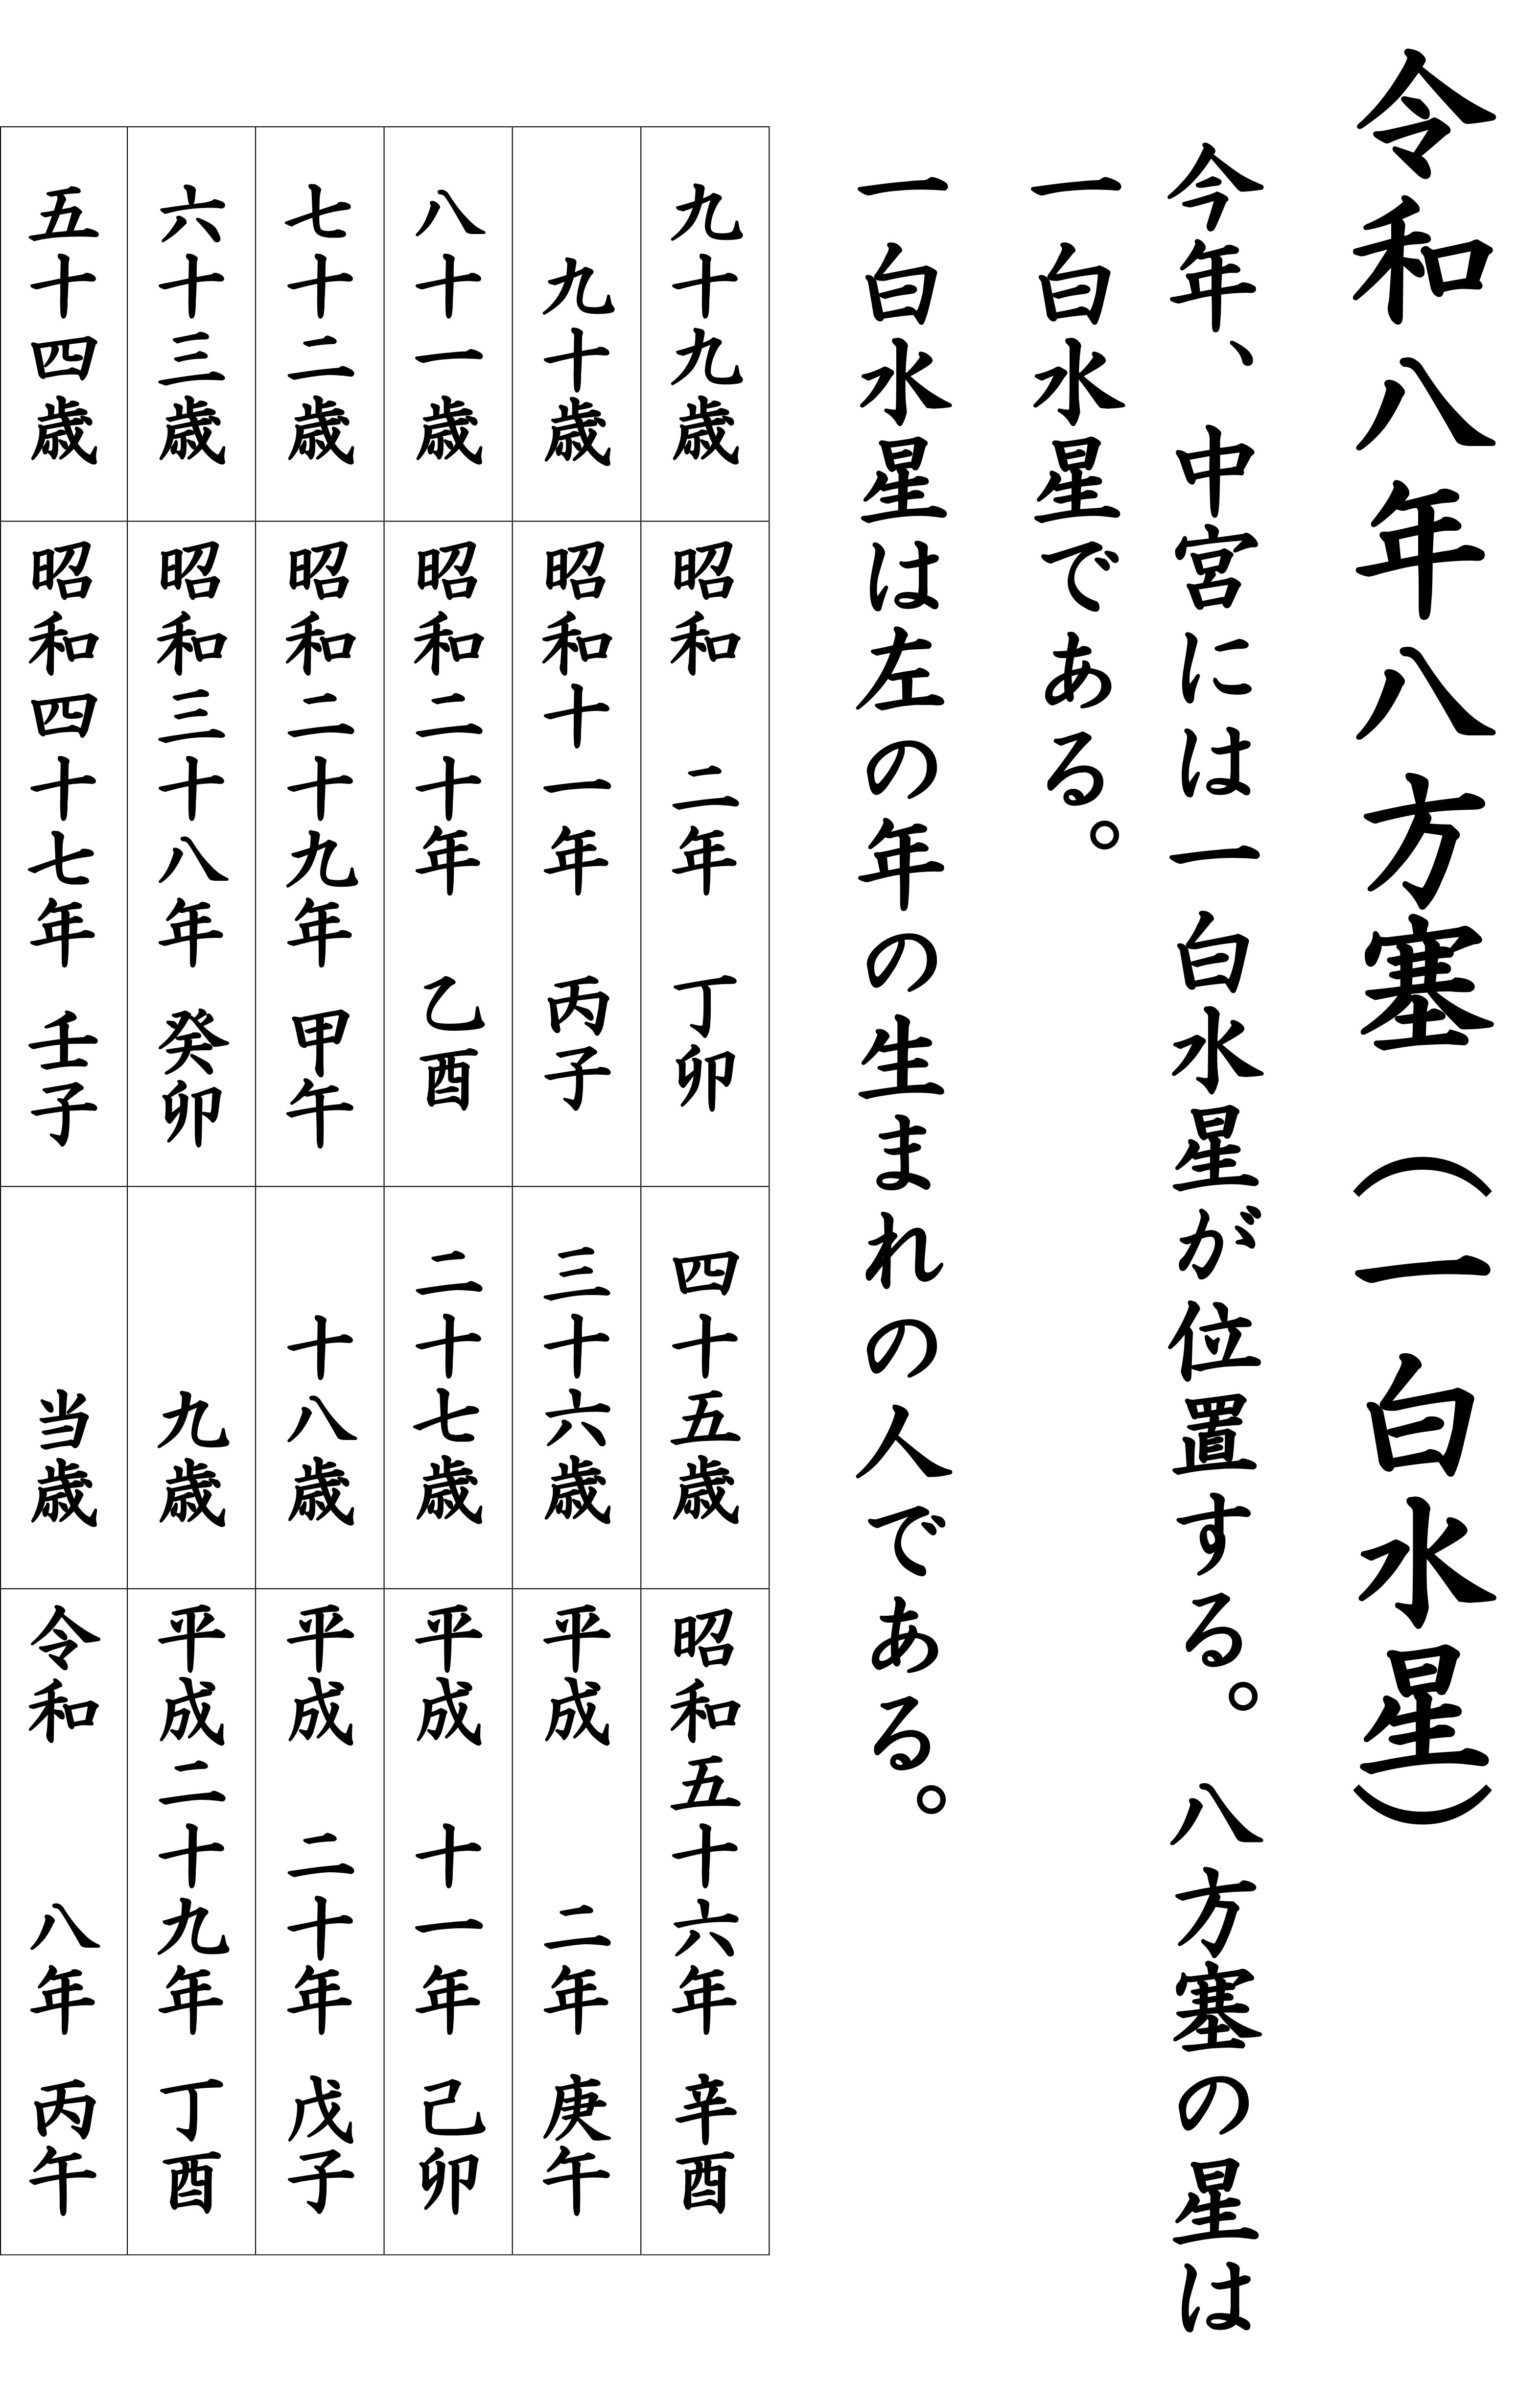 令和八年八方塞（一白水星）
今年、中宮には一白水星が位置する。八方塞の星は
一白水星である。
一白水星は左の年の生まれの人である。
九十九歳 昭和二年 丁卯 四十五歳 昭和五十六年 辛酉
九十歳 昭和十一年 丙子 三十六歳 平成二年 庚午
八十一歳 昭和二十年 乙酉 二十七歳 平成十一年 己卯
七十二歳 昭和二十九年 甲午 十八歳 平成二十年 戊子
六十三歳 昭和三十八年 癸卯 九歳 平成二十九年 丁酉
五十四歳 昭和四十七年 壬子 当歳 令和八年 丙午